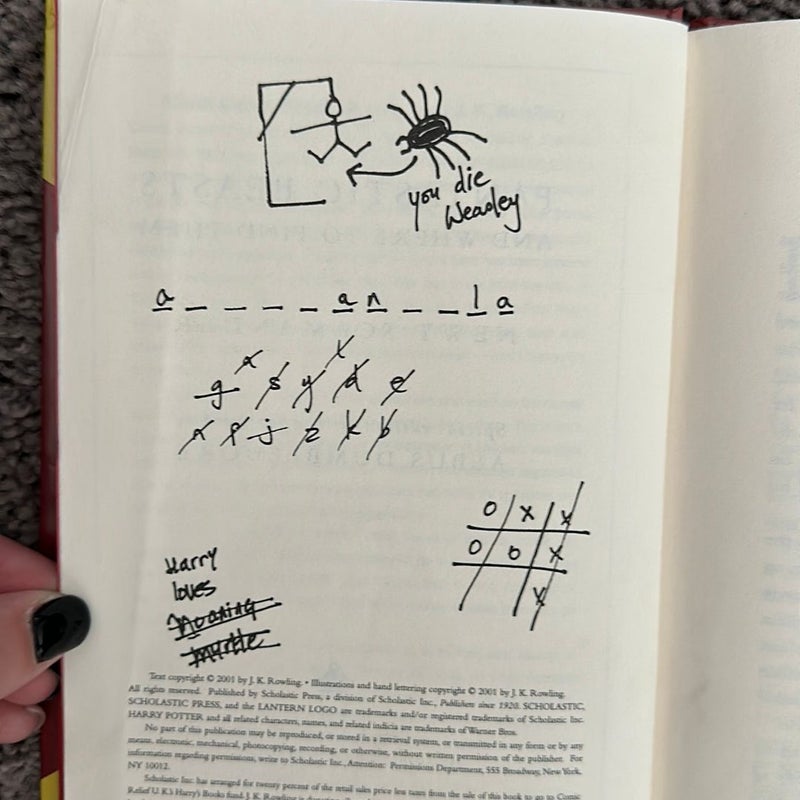 you die
Weasley
a _ _ _ _ a n _ _ l a
x x
g s y d e
x j z k b
O X X
O O X
X
Harry
loves
moaning
myrtle
Text copyright © 2001 by J. K. Rowling. • Illustrations and hand lettering copyright © 2001 by J. K. Rowling.
All rights reserved. Published by Scholastic Press, a division of Scholastic Inc., Publishers since 1920. SCHOLASTIC,
SCHOLASTIC PRESS, and the LANTERN LOGO are trademarks and/or registered trademarks of Scholastic Inc.
HARRY POTTER and all related characters, names, and related indicia are trademarks of Warner Bros.
No part of this publication may be reproduced, or stored in a retrieval system, or transmitted in any form or by any
means, electronic, mechanical, photocopying, recording, or otherwise, without written permission of the publisher. For
information regarding permissions, write to Scholastic Inc., Attention: Permissions Department, 555 Broadway, New York,
NY 10012.
Scholastic Inc. has arranged for twenty percent of the retail sales price less taxes from the sale of this book to go to Comic
Relief U.K.'s Harry's Books fund. J. K. Rowling is